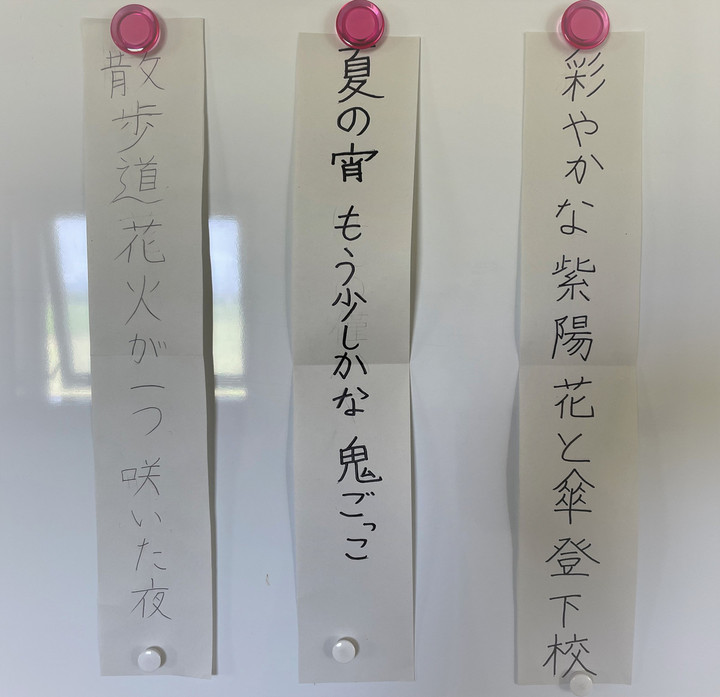 彩やかな 紫陽花と傘 登下校
夏の宵 もう少しかな 鬼ごっこ
散歩道花火が一つ 咲いた夜